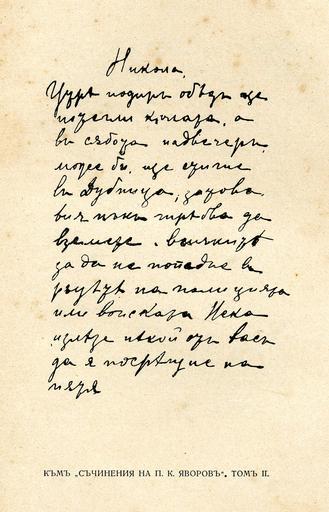 Никола,
Утрѣ подирь обѣдъ ще
колата, а
въ сѫбота надвечерь,
може би, ще стигне
въ Дубница; затова,
вие пъкъ трѣбва да
вземете всичкитѣ
за да не попадне въ
рѫцѣтѣ на полицията
или войската Нека
излѣзе нѣкой отъ васъ
да я посрѣщне на
пѫтя
КЪМЪ „СЪЧИНЕНИЯ НА П. К. ЯВОРОВЪ“. ТОМЪ II.